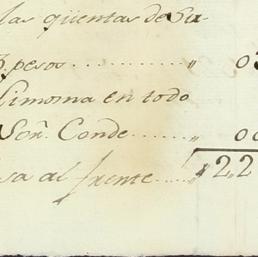 las qüentas de Su-
3, pesos ........... " 03
Limosna en todo
Señ. Conde ...... " 00
sa al frente ..... " 122